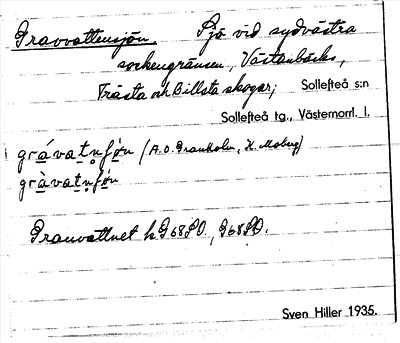 Gravvattensjön. Sjö vid sydvästra
sockengränsen, Västanbäcks,
Trästa och Billsta skogar; Sollefteå s:n
Sollefteå tg., Västernorrl. l.
grávatn̥ʃön (A.O. Granholm, H. Moberg)
gràvatn̥ʃön
Grauvattnet k G68SO, G68SO.
Sven Hiller 1935.